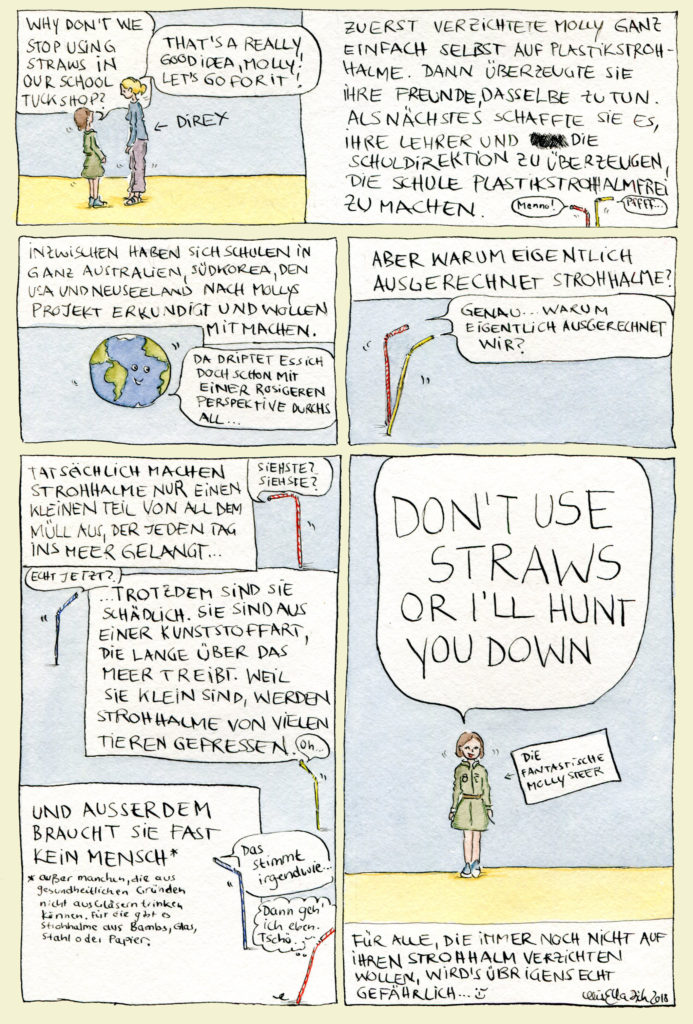 WHY DON'T WE
STOP USING
STRAWS IN
OUR SCHOOL
TUCKSHOP?
THAT'S A REALLY
GOOD IDEA, MOLLY!
LET'S GO FOR IT!
← DIREX
ZUERST VERZICHTETE MOLLY GANZ
EINFACH SELBST AUF PLASTIKSTROH-
HALME. DANN ÜBERZEUGTE SIE
IHRE FREUNDE, DASSELBE ZU TUN.
ALS NÄCHSTES SCHAFFTE SIE ES,
IHRE LEHRER UND DIE
SCHULDIREKTION ZU ÜBERZEUGEN,
DIE SCHULE PLASTIKSTROHHALMFREI
ZU MACHEN.
Menno!
Pffff...
INZWISCHEN HABEN SICH SCHULEN IN
GANZ AUSTRALIEN, SÜDKOREA, DEN
USA UND NEUSEELAND NACH MOLLYS
PROJEKT ERKUNDIGT UND WOLLEN
MITMACHEN.
DA DRIPTET ES SICH
DOCH SCHON MIT
EINER ROSIGEREN
PERSPEKTIVE DURCHS
ALL...
ABER WARUM EIGENTLICH
AUSGERECHNET STROHHALME?
GENAU... WARUM
EIGENTLICH AUSGERECHNET
WIR?
TATSÄCHLICH MACHEN
STROHHALME NUR EINEN
KLEINEN TEIL VON ALL DEM
MÜLL AUS, DER JEDEN TAG
INS MEER GELANGT...
SIEHSTE?
SIEHSTE?
ECHT JETZT?
...TROTZDEM SIND SIE
SCHÄDLICH. SIE SIND AUS
EINER KUNSTSTOFFART,
DIE LANGE ÜBER DAS
MEER TREIBT. WEIL
SIE KLEIN SIND, WERDEN
STROHHALME VON VIELEN
TIEREN GEFRESSEN.
Oh...
UND AUSSERDEM
BRAUCHT SIE FAST
KEIN MENSCH*
* außer manchen, die aus
gesundheitlichen Gründen
nicht aus Gläsern trinken
können. Für die gibt es
Strohhalme aus Bambus, Glas,
Stahl oder Papier.
Das
stimmt
irgendwie...
Dann geh
ich eben.
Tschö...
DON'T USE
STRAWS
OR I'LL HUNT
YOU DOWN
← DIE
FANTASTISCHE
MOLLY STEER
FÜR ALLE, DIE IMMER NOCH NICHT AUF
IHREN STROHHALM VERZICHTEN
WOLLEN, WIRD'S ÜBRIGENS ECHT
GEFÄHRLICH...
2018